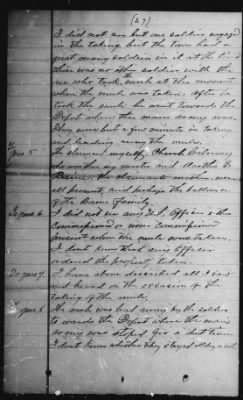 (27)
I did not see but one soldier engaged
in the taking but the town had a
great many soldiers in it at the time
there was no other soldier with the
one who took the mule at the moment
when the mule was taken. After he
took the mule he went towards the
Depot where the main army was.
They were but a few minutes in taking
and leading away the mule.
To ques 5 The claimant myself,
who another my sister
the claimant mother were
all present, and perhaps the balance
of the family.
To ques 6 I did not see any U.S. Officer either
commissioned or non commissioned
present when the mule was taken.
I don't know that any officer
ordered the property taken.
To ques 7 I have above described all I saw
and heard on the occasion of the
taking of the mule.
ques 8 The mule was lead away by the soldier
towards the Depot where the main
army was stoped for a short time.
I don't know whether they stayed all day or not.